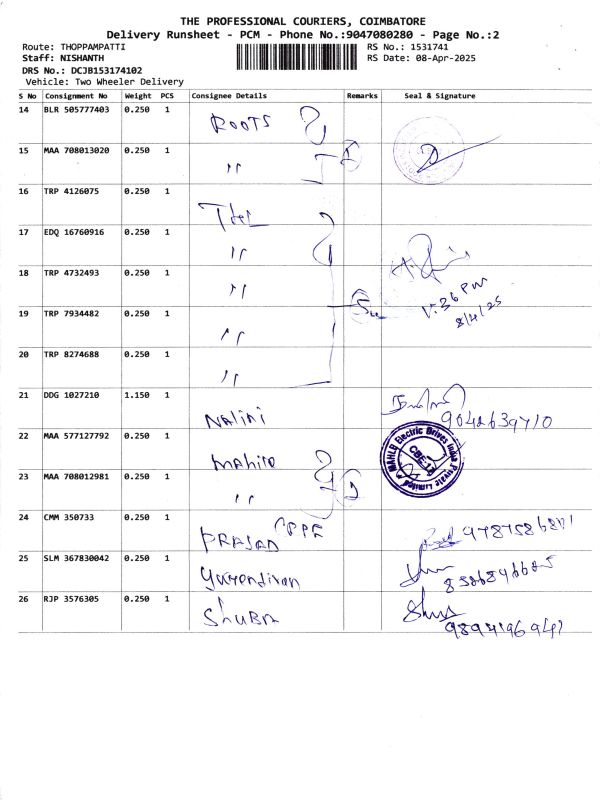 THE PROFESSIONAL COURIERS, COIMBATORE
Delivery Runsheet - PCM - Phone No.:9047080280 - Page No.:2
Route: THOPPAMPATTI
RS No.: 1531741
Staff: NISHANTH
RS Date: 08-Apr-2025
DRS No.: DCJB153174102
Vehicle: Two Wheeler Delivery
S No Consignment No Weight PCS Consignee Details Remarks Seal & Signature
14 BLR 505777403 0.250 1
ROOTS
15 MAA 708013020 0.250 1
"
16 TRP 4126075 0.250 1
17 EDQ 16760916 0.250 1
"
18 TRP 4732493 0.250 1
"
19 TRP 7934482 0.250 1
"
20 TRP 8274688 0.250 1
"
8/4/25
21 DDG 1027210 1.150 1
Nalini
9042639710
22 MAA 577127792 0.250 1
MAHLE Electric Drives India Private Limited
23 MAA 708012981 0.250 1
"
24 CMM 350733 0.250 1
PRASAD
25 SLM 367830042 0.250 1
26 RJP 3576305 0.250 1
ShUBA